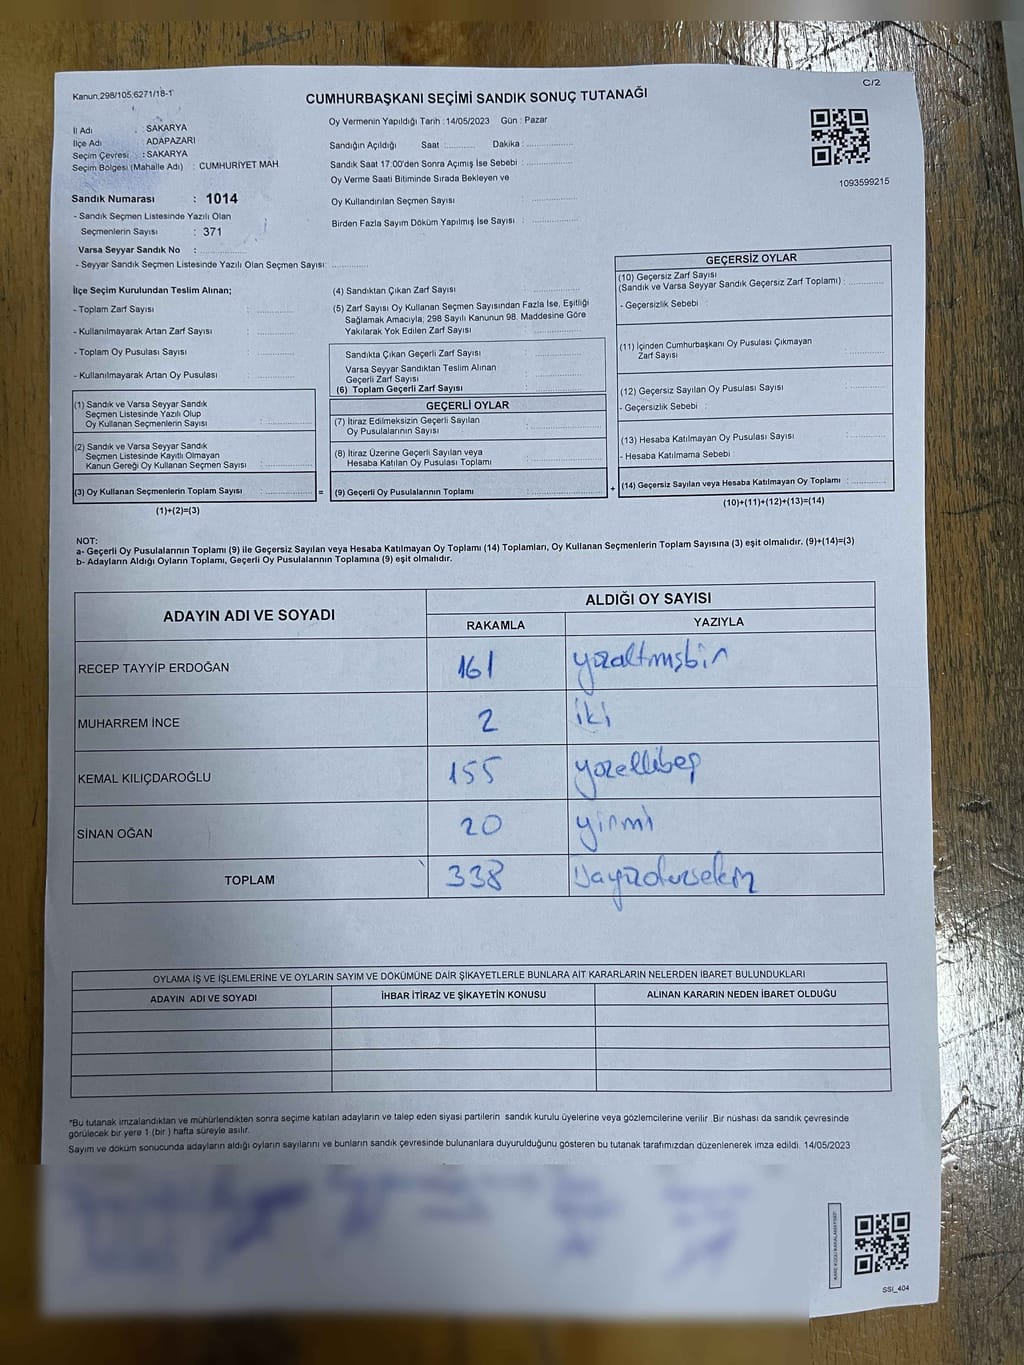 C/2
Kanun;298/105;6271/18-1
CUMHURBAŞKANI SEÇİMİ SANDIK SONUÇ TUTANAĞI
İl Adı : SAKARYA
İlçe Adı : ADAPAZARI
Seçim Çevresi : SAKARYA
Seçim Bölgesi (Mahalle Adı) : CUMHURİYET MAH
Sandık Numarası : 1014
- Sandık Seçmen Listesinde Yazılı Olan
Seçmenlerin Sayısı : 371
Varsa Seyyar Sandık No :
- Seyyar Sandık Seçmen Listesinde Yazılı Olan Seçmen Sayısı:
Oy Vermenin Yapıldığı Tarih :14/05/2023 Gün : Pazar
Sandığın Açıldığı Saat : Dakika :
Sandık Saat 17:00'den Sonra Açımış İse Sebebi :
Oy Verme Saati Bitiminde Sırada Bekleyen ve
Oy Kullandırılan Seçmen Sayısı :
Birden Fazla Sayım Döküm Yapılmış İse Sayısı :
1093599215
İlçe Seçim Kurulundan Teslim Alınan;
- Toplam Zarf Sayısı :
- Kullanılmayarak Artan Zarf Sayısı :
- Toplam Oy Pusulası Sayısı :
- Kullanılmayarak Artan Oy Pusulası :
(1) Sandık ve Varsa Seyyar Sandık
Seçmen Listesinde Yazılı Olup
Oy Kullanan Seçmenlerin Sayısı :
(2) Sandık ve Varsa Seyyar Sandık
Seçmen Listesinde Kayıtlı Olmayan
Kanun Gereği Oy Kullanan Seçmen Sayısı :
(3) Oy Kullanan Seçmenlerin Toplam Sayısı : =
(1)+(2)=(3)
(4) Sandıktan Çıkan Zarf Sayısı :
(5) Zarf Sayısı Oy Kullanan Seçmen Sayısından Fazla İse, Eşitliği
Sağlamak Amacıyla; 298 Sayılı Kanunun 98. Maddesine Göre
Yakılarak Yok Edilen Zarf Sayısı :
Sandıkta Çıkan Geçerli Zarf Sayısı :
Varsa Seyyar Sandıktan Teslim Alınan
Geçerli Zarf Sayısı :
(6) Toplam Geçerli Zarf Sayısı :
GEÇERLİ OYLAR
(7) İtiraz Edilmeksizin Geçerli Sayılan
Oy Pusulalarının Sayısı :
(8) İtiraz Üzerine Geçerli Sayılan veya
Hesaba Katılan Oy Pusulası Toplamı :
(9) Geçerli Oy Pusulalarının Toplamı : +
GEÇERSİZ OYLAR
(10) Geçersiz Zarf Sayısı
(Sandık ve Varsa Seyyar Sandık Geçersiz Zarf Toplamı) :
- Geçersizlik Sebebi :
(11) İçinden Cumhurbaşkanı Oy Pusulası Çıkmayan
Zarf Sayısı :
(12) Geçersiz Sayılan Oy Pusulası Sayısı :
- Geçersizlik Sebebi :
(13) Hesaba Katılmayan Oy Pusulası Sayısı :
- Hesaba Katılmama Sebebi :
(14) Geçersiz Sayılan veya Hesaba Katılmayan Oy Toplamı :
(10)+(11)+(12)+(13)=(14)
NOT:
a- Geçerli Oy Pusulalarının Toplamı (9) ile Geçersiz Sayılan veya Hesaba Katılmayan Oy Toplamı (14) Toplamları, Oy Kullanan Seçmenlerin Toplam Sayısına (3) eşit olmalıdır. (9)+(14)=(3)
b- Adayların Aldığı Oyların Toplamı, Geçerli Oy Pusulalarının Toplamına (9) eşit olmalıdır.
ADAYIN ADI VE SOYADI ALDIĞI OY SAYISI
RAKAMLA YAZIYLA
RECEP TAYYİP ERDOĞAN 161 yüzaltmışbir
MUHARREM İNCE 2 iki
KEMAL KILIÇDAROĞLU 155 yüzellibeş
SİNAN OĞAN 20 yirmi
TOPLAM 338
OYLAMA İŞ VE İŞLEMLERİNE VE OYLARIN SAYIM VE DÖKÜMÜNE DAİR ŞİKAYETLERLE BUNLARA AİT KARARLARIN NELERDEN İBARET BULUNDUKLARI
ADAYIN ADI VE SOYADI İHBAR İTİRAZ VE ŞİKAYETİN KONUSU ALINAN KARARIN NEDEN İBARET OLDUĞU
*Bu tutanak imzalandıktan ve mühürlendikten sonra seçime katılan adayların ve talep eden siyasi partilerin sandık kurulu üyelerine veya gözlemcilerine verilir. Bir nüshası da sandık çevresinde
görülecek bir yere 1 (bir ) hafta süreyle asılır.
Sayım ve döküm sonucunda adayların aldığı oyların sayılarını ve bunların sandık çevresinde bulunanlara duyurulduğunu gösteren bu tutanak tarafımızdan düzenlenerek imza edildi. 14/05/2023
SSI_404